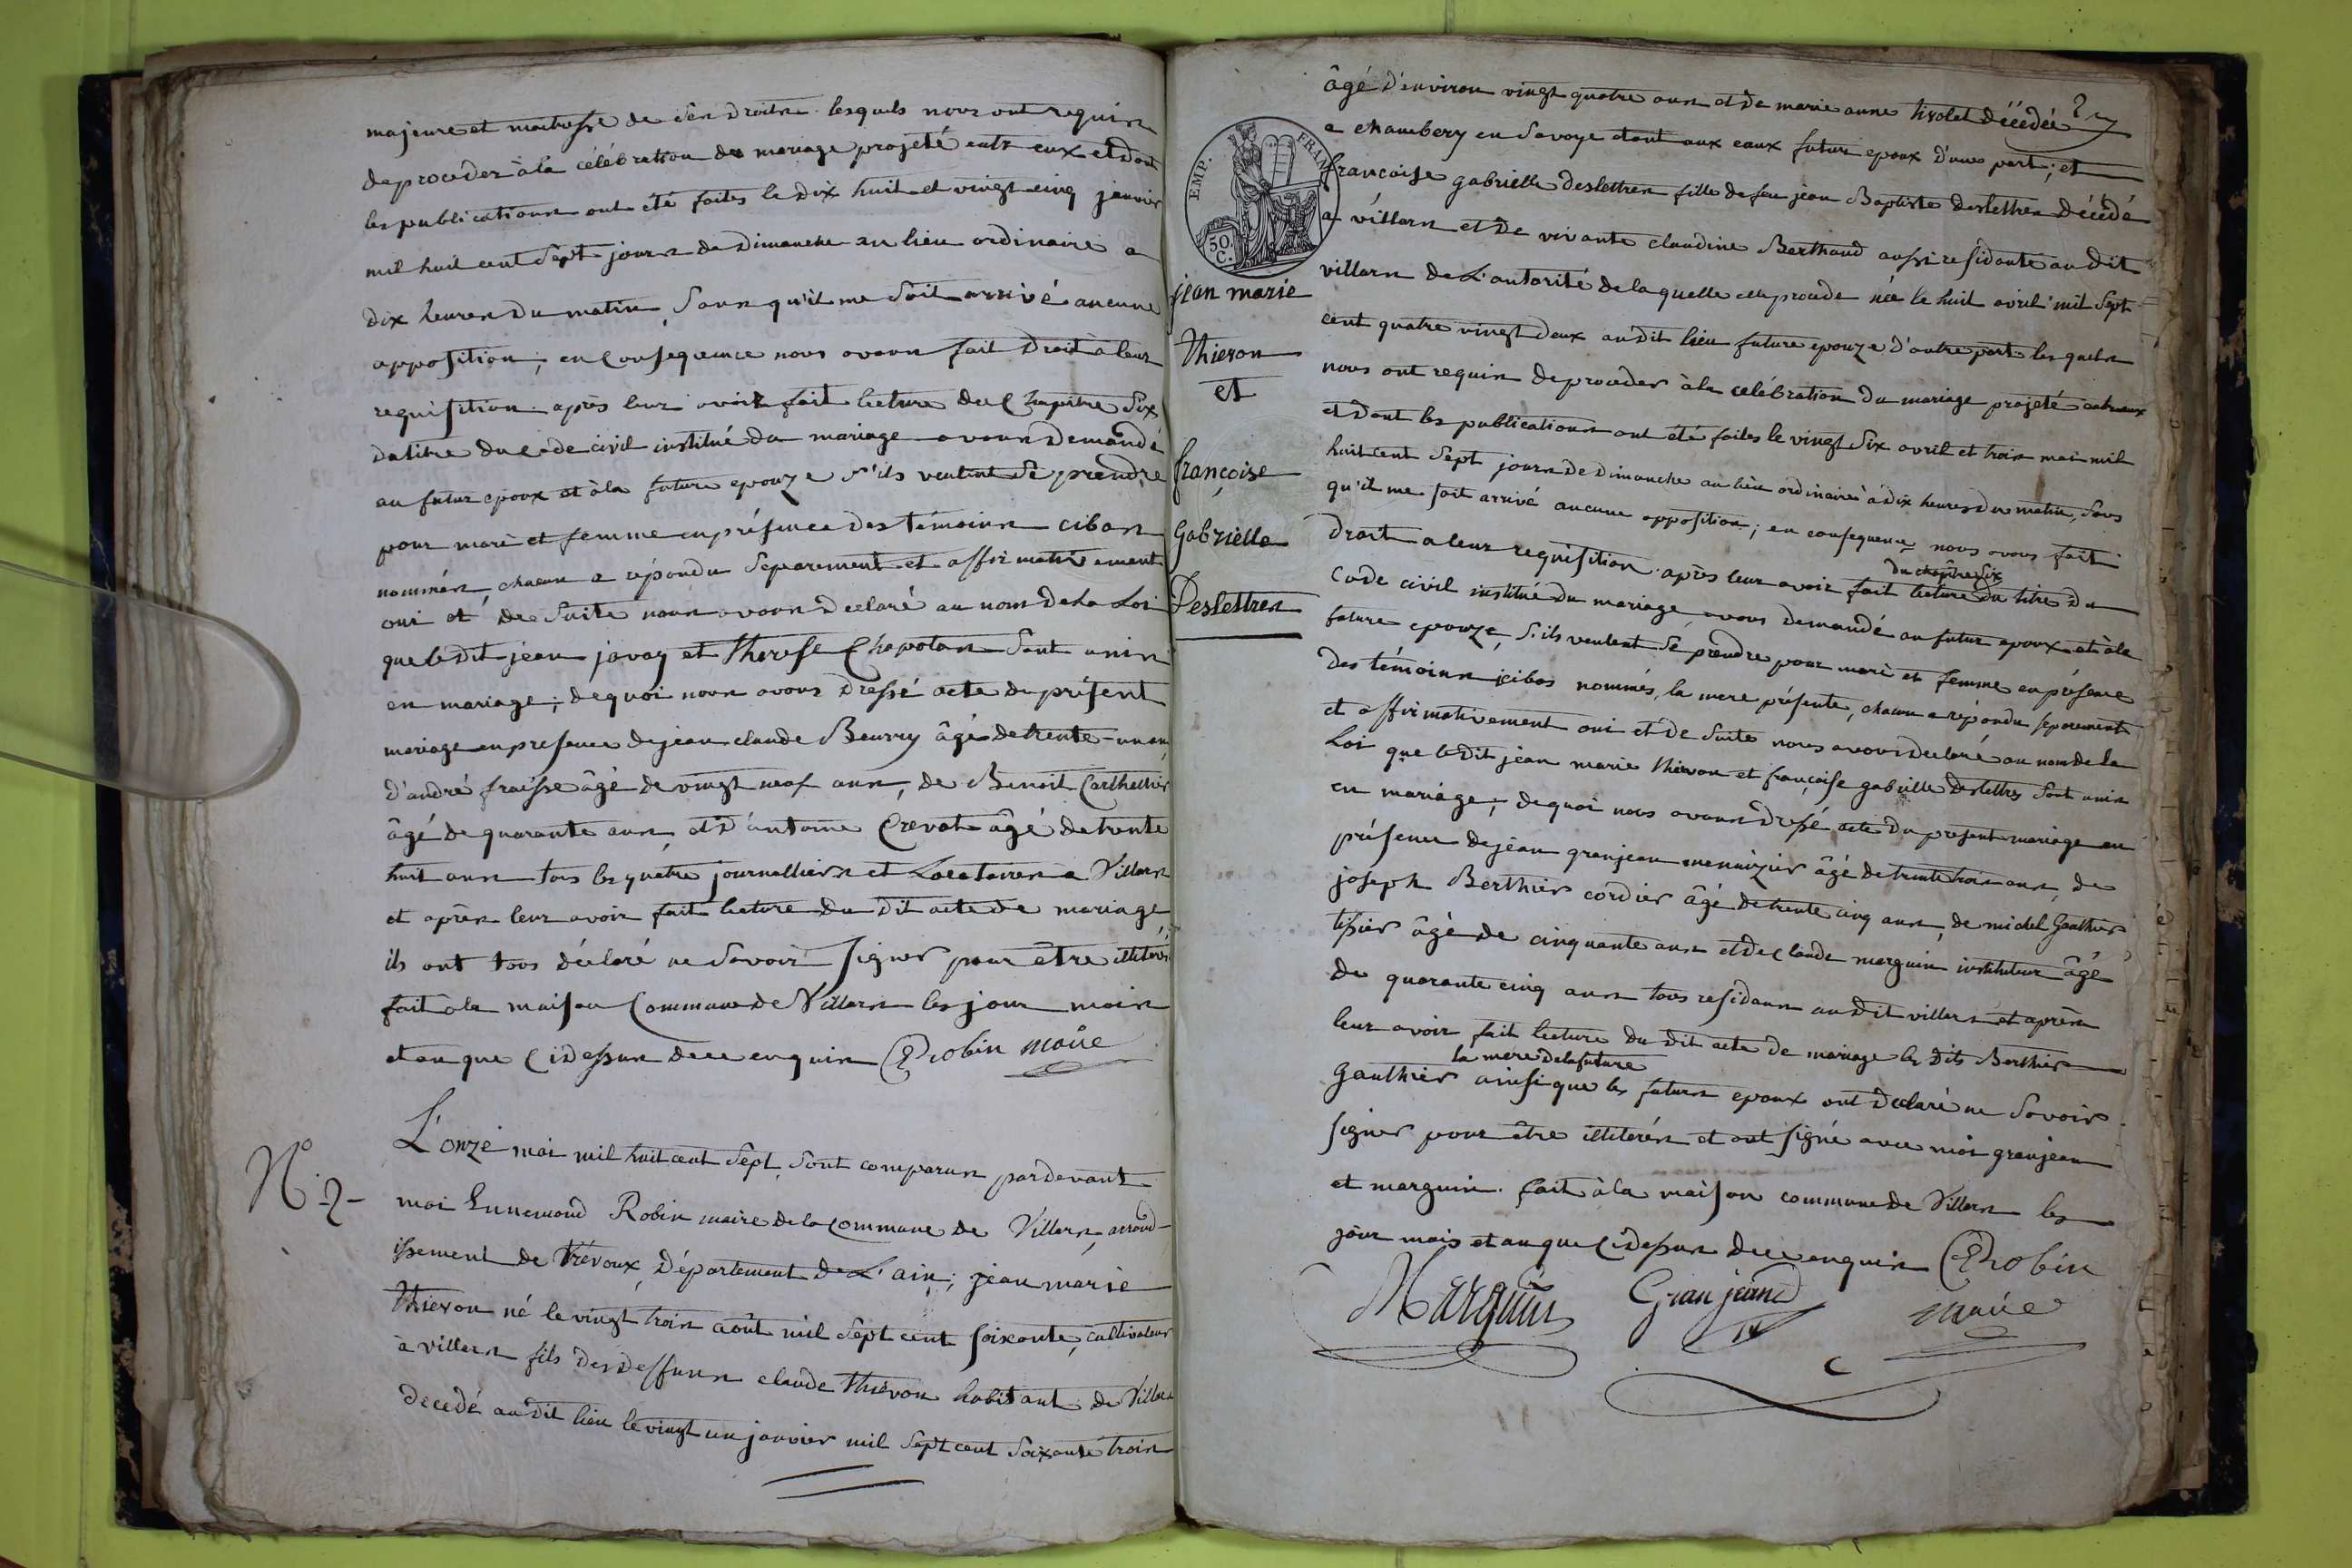 majeure et maitresse de ses droits. lesquels nous ont requis
de proceder à la célébration du mariage projeté entr eux et dont
les publications ont été faites le dix huit et vingt cinq janvier
mil huit cent Sept jours de Dimanche au lieu ordinaire a
dix heures du matin, Sans qu'il me Soit arrivé aucune
opposition; en Consequence nous avons fait Droit à leur
requisition. après leur avoir fait lecture du Chapitre Six
du titre du Code civil institué du mariage avons Demandé
au futur epoux et à la future epouze s'ils veulent Se prendre
pour mari et femme en présence des témoins cibas
nommés, chacun a répondu Separement et affirmativement
oui et de Suite nous avons Declaré au nom de la Loi
que le dit jean javay et therese Chapolar Sont unis
en mariage; de quoi nous avons Dressé acte du présent
mariage en presence de jean claude Beurry âgé de trente-un an,
d'andré fraisse âgé de vingt neuf ans, de Benoit Carthelier
âgé de quarante ans et D'antoine Crevat âgé de trente
huit ans tous les quatre journalliers et Locataires à Villars
et après leur avoir fait lecture du dit acte de mariage
ils ont tous déclaré ne Savoir Signer pour etre illiterés
fait à la maison Commune de Villars les jour mois
et an que Cidessus de ce enquis E Robin maire
N.º 2-
L'onze mai mil huit cent Sept, Sont comparus pardevant
moi Ennemond Robin maire de la Commune de Villars, arrond-
issement de Trévoux, Département de L'ain; jean marie
Thievon né le vingt trois août mil Sept cent soixante, cultivateur
à villars fils des deffuns claude Thievon habitant de Villars
decedé au dit lieu le vingt un janvier mil Sept cent Soixante trois
TEMP. FRAN
50 C.
jean marie
Thievon
et
françoise
Gabrielle
Deslettres
âgé D'environ vingt quatre ans et De marie anne tivolet décedée
a chambery en Savoye etant aux eaux futur epoux d'une part; et
françoise gabrielle Deslettres fille de feu jean Baptiste deslettres décédé
a villars et De vivante claudine Berthaud aussi residante au dit
villars de L'autorité de la quelle elle procede née le huit avril mil Sept
cent quatre vingt deux au dit lieu future epouze d'autre part les quels
nous ont requis de proceder à la celébration du mariage projeté entr eux
et Dont les publications ont été faites le vingt Six avril et trois mai mil
huit cent Sept jours De Dimanche au lieu ordinaire à dix heures du matin, Sans
qu'il me soit arrivé aucune opposition; en consequence nous avons fait
Droit a leur requisition. après leur avoir fait lecture du chapitre Six du titre du
Code civil institué du mariage, avons Demandé au futur epoux et à la
future epouze, S'ils veulent Se prendre pour mari et femme en présence
des témoins icibas nommés, la mere présente, chacun a répondu separement
et affirmativement oui et De Suite nous avons declaré au nom de la
Loi que le dit jean marie thievon et françoise gabrielle deslettres Sont unis
en mariage; de quoi nous avons dressé acte du present mariage en
présence de jean granjean menuizier âgé de trente trois ans, de
joseph Berthier cordier âgé de trente cinq ans, de michel Gauthier
tissier âgé de cinquante ans et de Claude marguin instituteur âgé
de quarante cinq ans tous residans au dit villars et après
leur avoir fait lecture du dit acte de mariage les dits Berthier
Gauthier la mere de la future ainsi que les futurs epoux ont declaré ne Savoir
signer pour être illiterés et ont signé avec moi granjean
et marguin. fait à la maison commune de Villars les
jour mois et an que Cidessus de ce enquis E Robin
Marguin Granjean maire